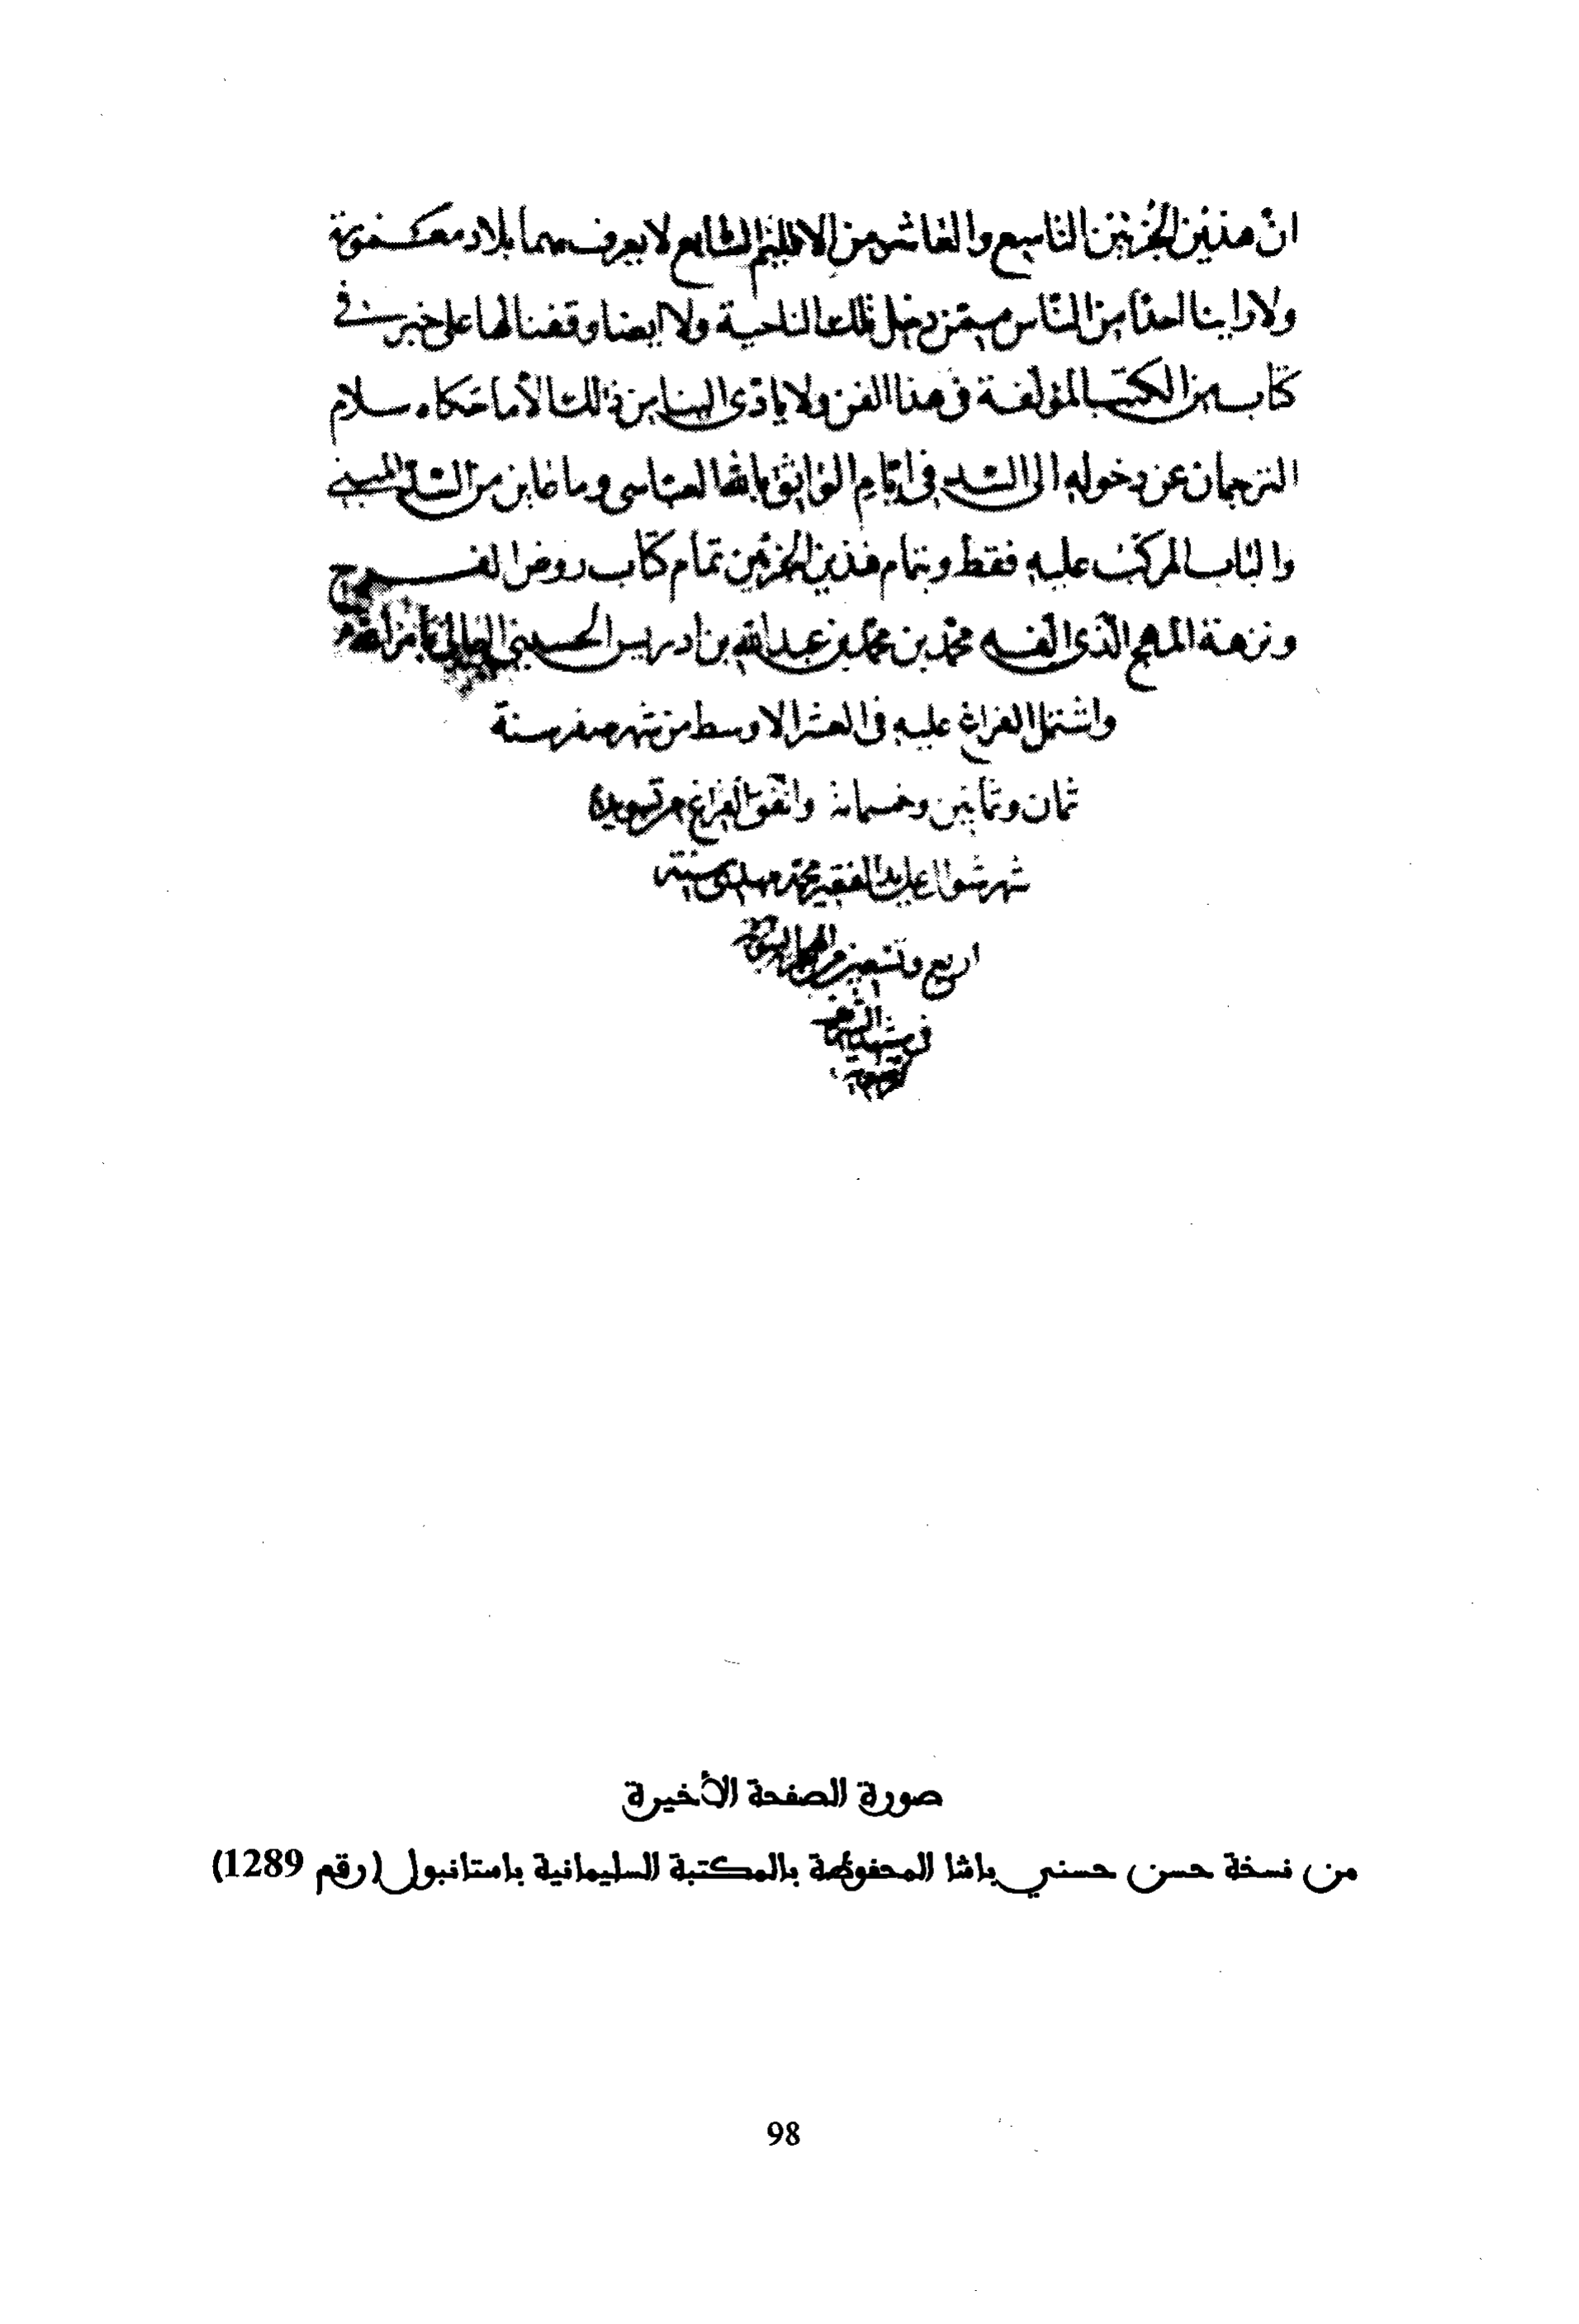 ان هذين الجزئين التاسع والعاشر من الاقليم السابع لا يعرف بهما بلاد معمورة
ولا راينا احدا من الناس ممن دخل تلك الناحية ولا ايضا وقفنا لها على خبر في
كتاب من الكتب المؤلفة فى هذا الفن ولا يادى الينا من ذلك الا ما حكاه سلام
الترجمان عن دخوله الى السد فى ايام الواثق بالله العباسى وما عاين من السد المبنى
والباب المركب عليه فقط وبتمام هذين الجزئين تمام كتاب روض الفرج
ونزهة المهج الذى الفه محمد بن محمد بن عبد الله بن ادريس الحسينى
واشتمل الفراغ عليه فى العشر الاوسط من شهر صفر سنة
ثمان وثمانين وخمسمائة واتفق الفراغ من تسويده
شهر شوال على يد الفقير محمد سنة
اربع وتسعين من
فى
صورة الصفحة الأخيرة
من نسخة حسن حسني باشا المحفوظة بالمكتبة السليمانية باستانبول (رقم 1289)
98